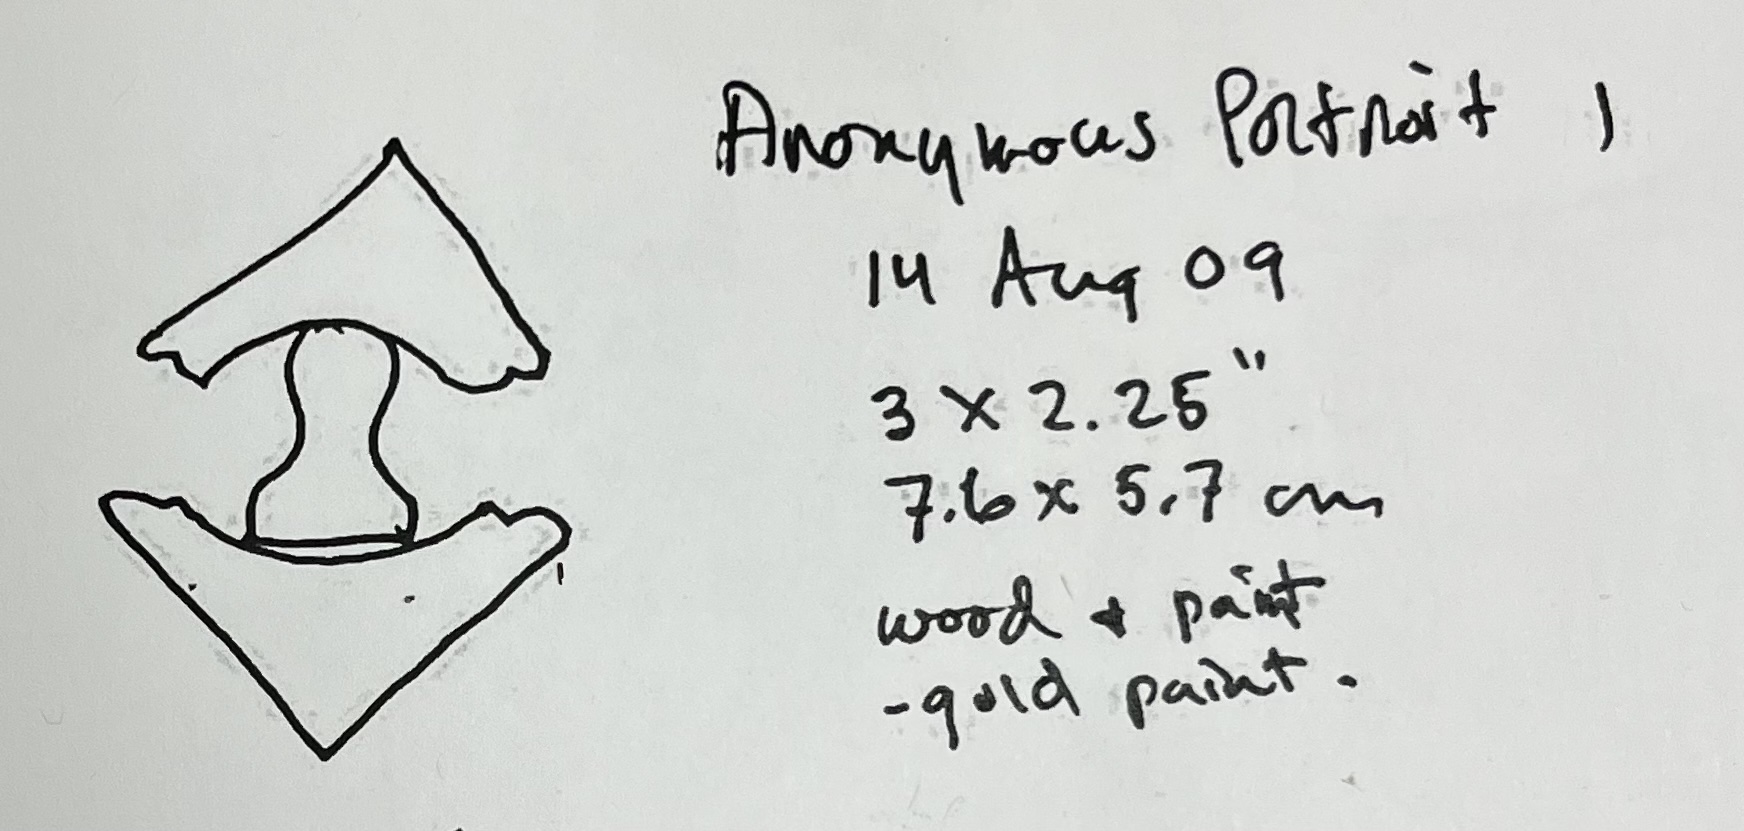 Anonymous Portrait 1
14 Aug 09
3 x 2.25"
7.6 x 5.7 cm
wood + paint
- gold paint.